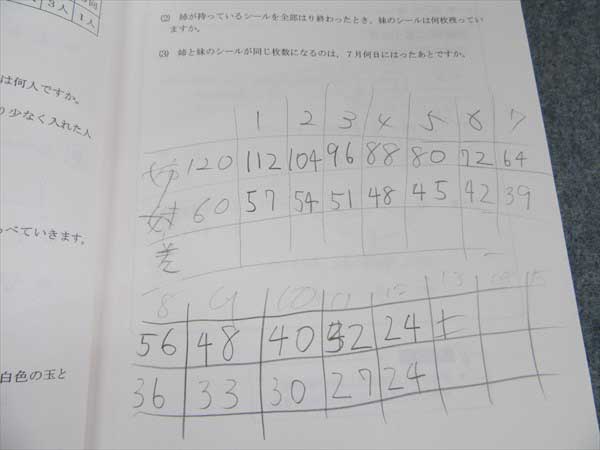 3人
1人
は何人ですか。
り少なく入れた人
べていきます。
白色の玉と
(2) 姉が持っているシールを全部はり終わったとき、妹のシールは何枚残ってい
ますか。
(3) 姉と妹のシールが同じ枚数になるのは、7月何日にはったあとですか。
1 2 3 4 5 6 7
姉 120 112 104 96 88 80 72 64
妹 60 57 54 51 48 45 42 39
差
8 9 10 11 12 13 14 15
56 48 40 32 24
36 33 30 27 24